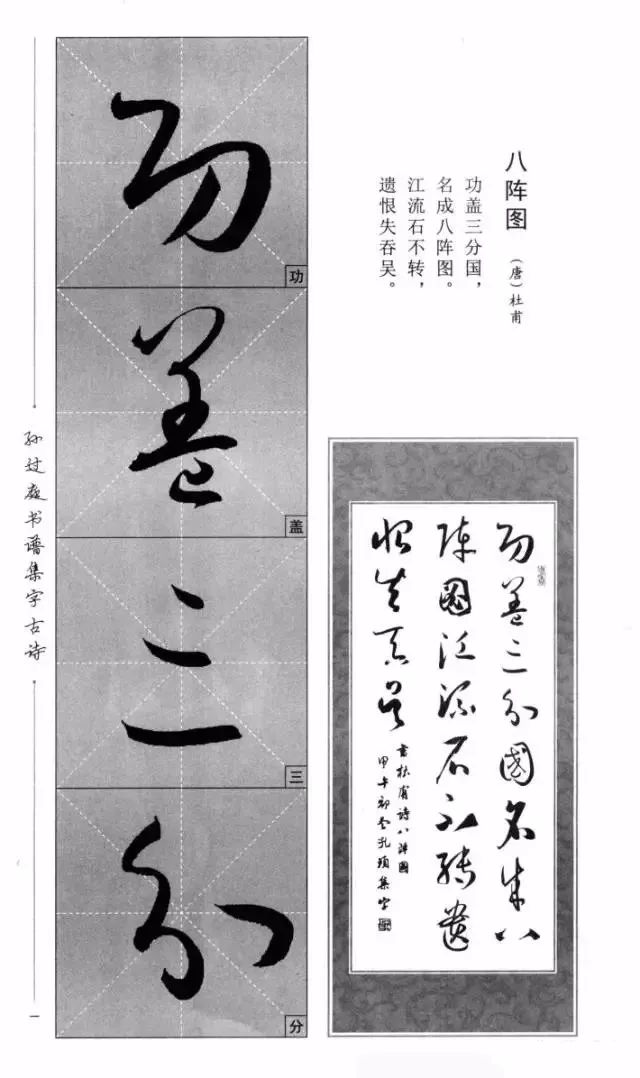 八阵图
（唐）杜甫
功盖三分国，
名成八阵图。
江流石不转，
遗恨失吞吴。
功
功
盖
盖
三
三
分
分
孙过庭书谱集字古诗
一
功盖三分国名成八
阵图江流石不转遗
恨失吞吴
书杜甫诗八阵图